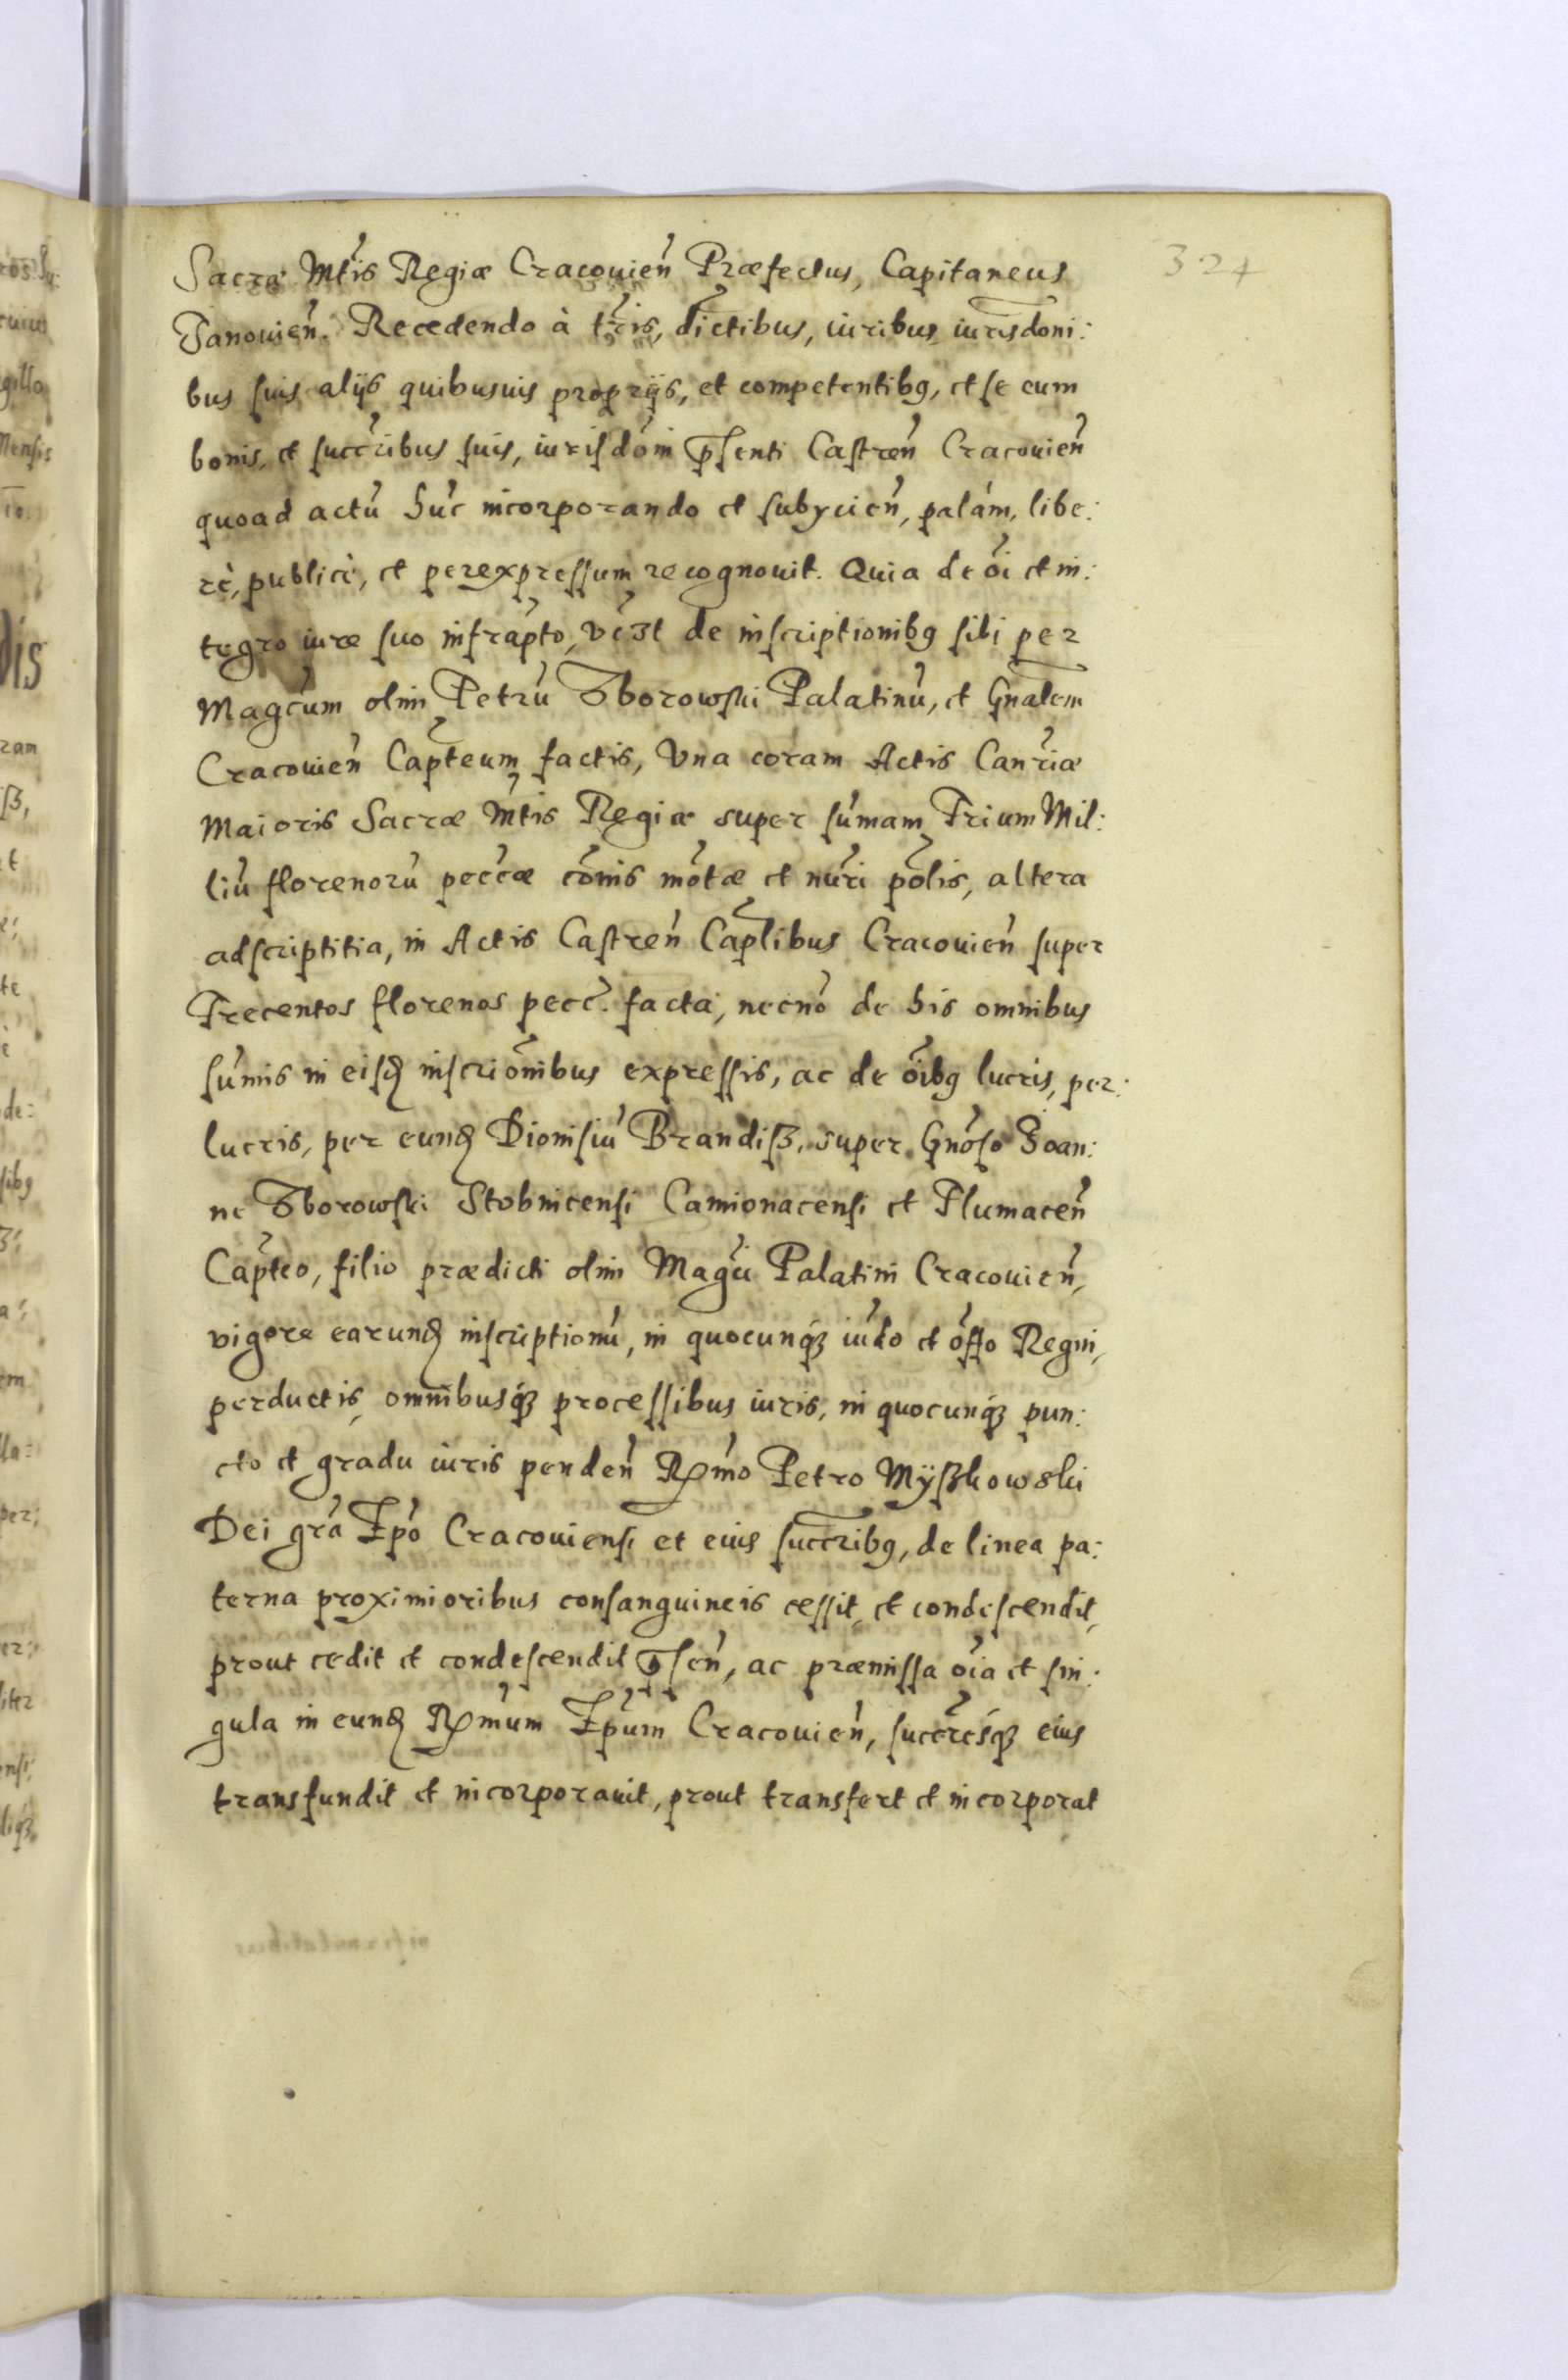 324
Sacræ Mtis Regiæ Cracouien Præfectus, Capitaneus
Janouien. Recedendo à tris, dictibus, iuribus iurisdoni:
bus suis alijs quibusuis proprijs, et competentibg, et se cum
bonis, et succribus suis, iurisdoni pñsenti Castren Cracouien
quoad actũ huc incorporando et subycien, palám, libe:
rè, publicè, et perexpressum recognouit. Quia de oi et in:
tegro iure suo infrapto, vczt de inscriptionibg sibi per
Magcum olim Petrũ Zborowski Palatinũ, et Gnalem
Cracouien Capteum factis, Vna coram Actis Canriæ
Maioris Sacræ Mtis Regiæ super sumam Trium Mil:
liũ florenorũ peccæ cõnis motæ et nuri polis, altera
adscriptitia, in Actis Castren Caplibus Cracouien super
Trecentos florenos pecc. facta, necno de his omnibus
sumis in eisd inscrionibus expressis, ac de oibg lucris, per:
lucris, per eund Dionisiũ Brandisz, super Gnoso Joan:
ne Zborowski Stobnicensi Camionacensi et Plumacen
Capteo, filio prædicti olim Magci Palatini Cracouien,
vigore earund inscriptionũ, in quocunq́ꝫ iudo et offo Regni,
perductis, omnibusq́ꝫ processibus iuris, in quocunq́ꝫ pun:
cto et gradu iuris penden Rmo Petro Myszkowski
Dei gra Epo Cracouiensi et eius succribg, de linea pa:
terna proximioribus consanguineis cessit, et condescendit,
prout cedit et condescendit pñsen, ac præmissa oia et sin:
gula in eund Rmum Epum Cracouien, succresq́ꝫ eius
transfundit et incorporauit, prout transfert et incorporat